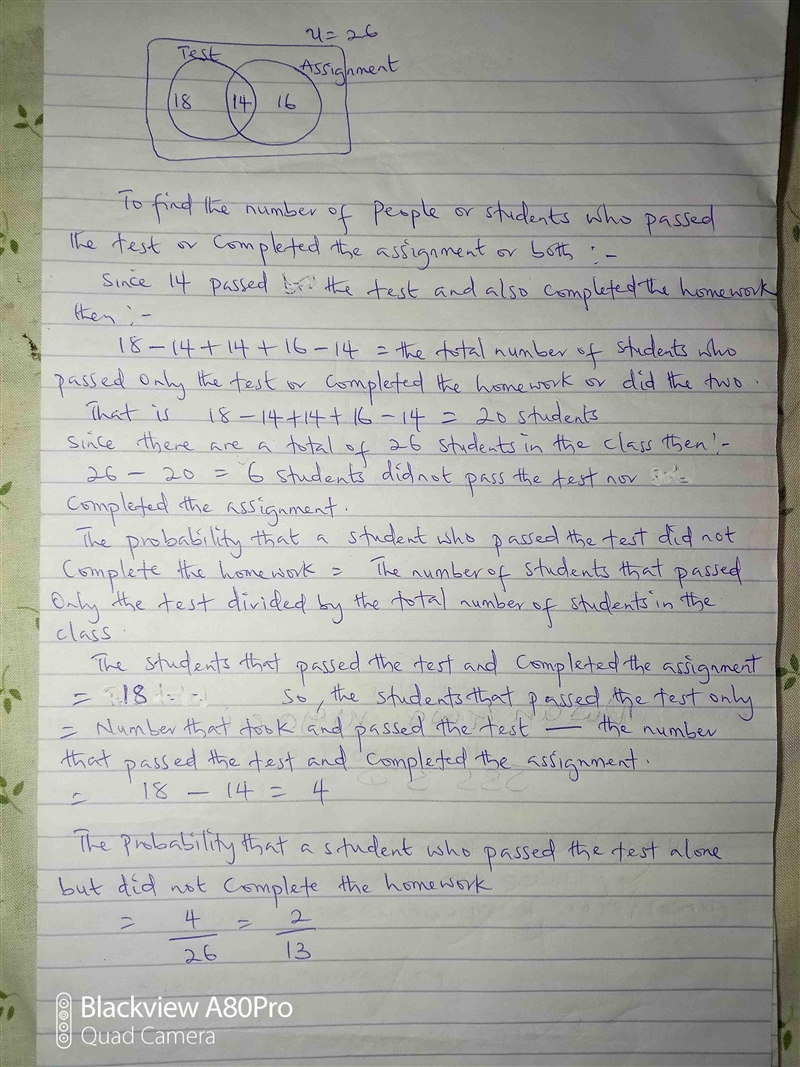 u = 26
Test
Assignment
18 14 16
To find the number of People or students who passed
the test or Completed the assignment or both :-
Since 14 passed the test and also completed the homework
then :-
18 - 14 + 14 + 16 - 14 = the total number of students who
passed only the test or Completed the homework or did the two.
That is 18 - 14 + 14 + 16 - 14 = 20 students
Since there are a total of 26 students in the class then :-
26 - 20 = 6 students did not pass the test nor
Completed the assignment.
The probability that a student who passed the test did not
Complete the homework = The number of students that passed
Only the test divided by the total number of students in the
class.
The students that passed the test and Completed the assignment
= 18 So, the students that passed the test only
= Number that took and passed the test — the number
that passed the test and Completed the assignment.
= 18 - 14 = 4
The Probability that a student who passed the test alone
but did not Complete the homework
= 4/26 = 2/13
Blackview A80Pro
Quad Camera